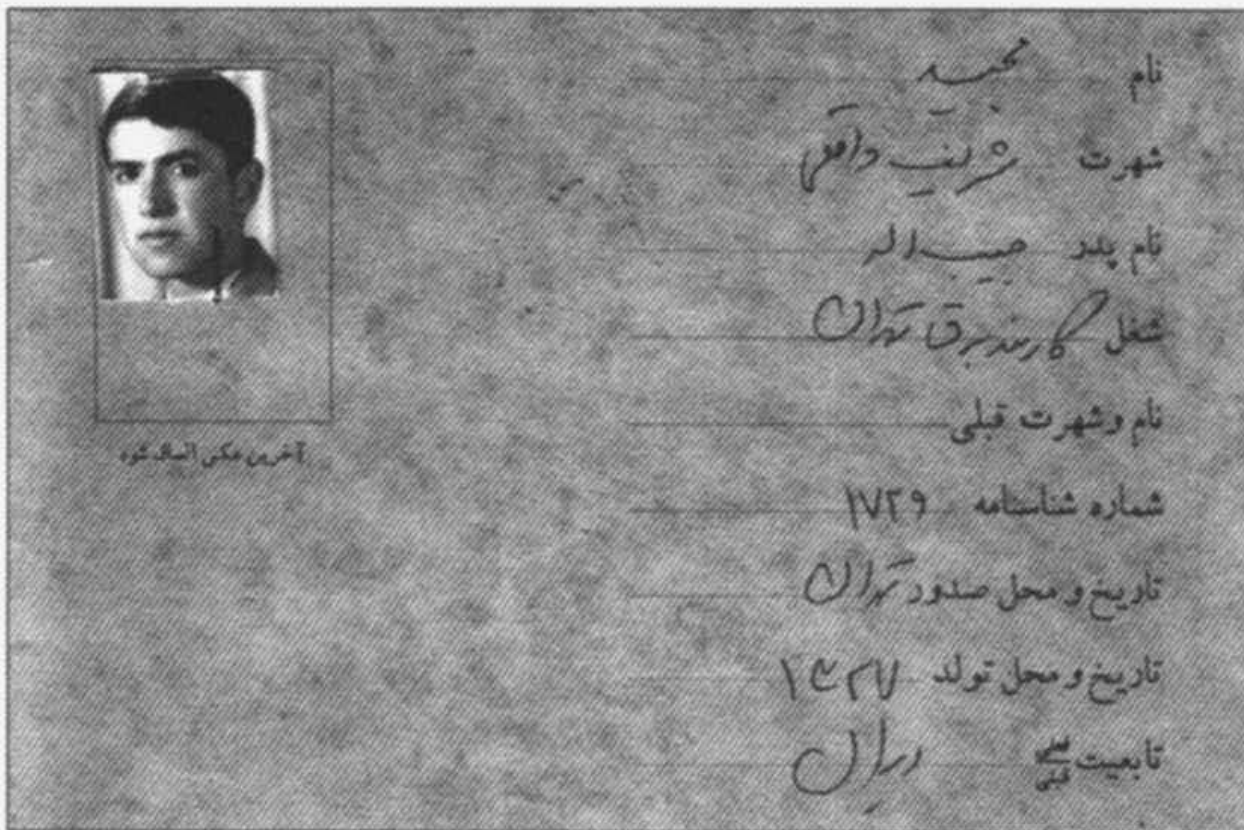 نام مجید
شهرت شریف واقفی
نام پدر حبیب اله
شغل کارمند برق تهران
نام وشهرت قبلی
شماره شناسنامه ۱۷۲۹
تاریخ و محل صدور تهران
تاریخ و محل تولد ۱۳۲۷
تابعیت فعلی قبلی ایران
آخرین عکس الصاق شود